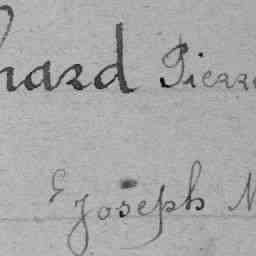 hard Pierre
Joseph M